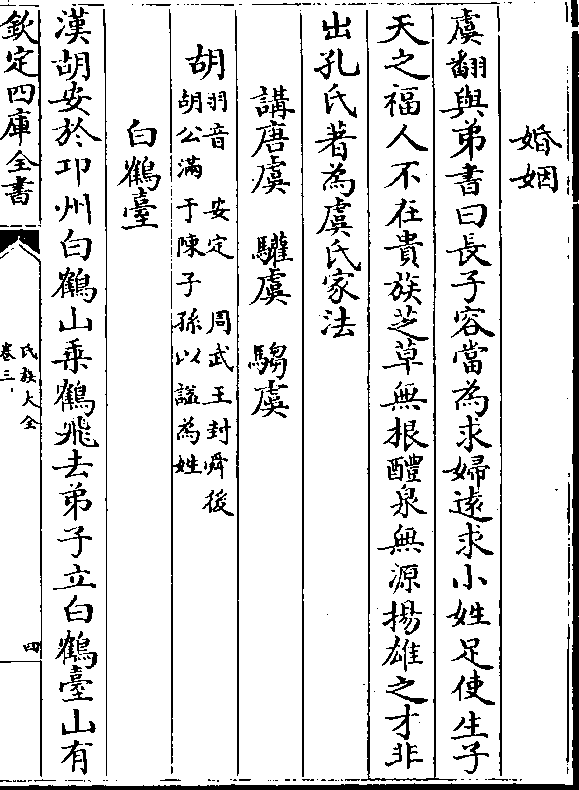 婚姻
虞翻與弟書曰長子容當為求婦遠求小姓足使生子
天之福人不在貴族芝草無根醴泉無源揚雄之才非
出孔氏著為虞氏家法
講唐虞　驩虞　騶虞
胡　羽音　安定　周武王封舜後
胡公滿于陳子孫以諡為姓
白鶴臺
漢胡安於邛州白鶴山乘鶴飛去弟子立白鶴臺山有
欽定四庫全書
氏族大全
卷三
四